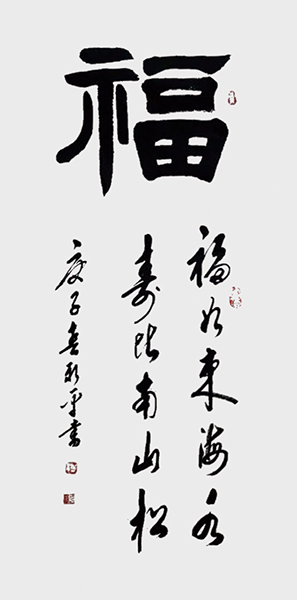 福
福如東海水
寿比南山松
庚子春新平書